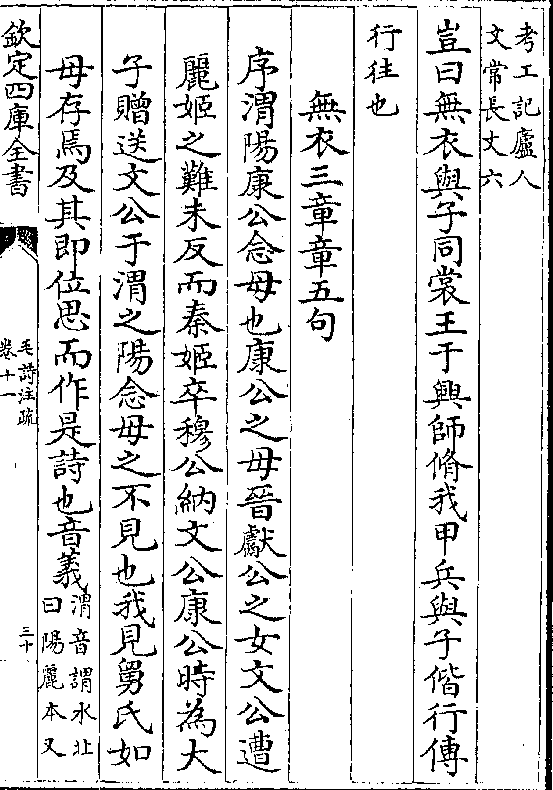 考工記廬人
文常長丈六
豈曰無衣與子同裳王于興師脩我甲兵與子偕行傳
行往也
無衣三章章五句
序渭陽康公念母也康公之母晉獻公之女文公遭
麗姬之難未反而秦姬卒穆公納文公康公時為大
子贈送文公于渭之陽念母之不見也我見舅氏如
母存焉及其即位思而作是詩也音義
渭音謂水北
曰陽麗本又
欽定四庫全書
毛詩注疏
卷十一
三十